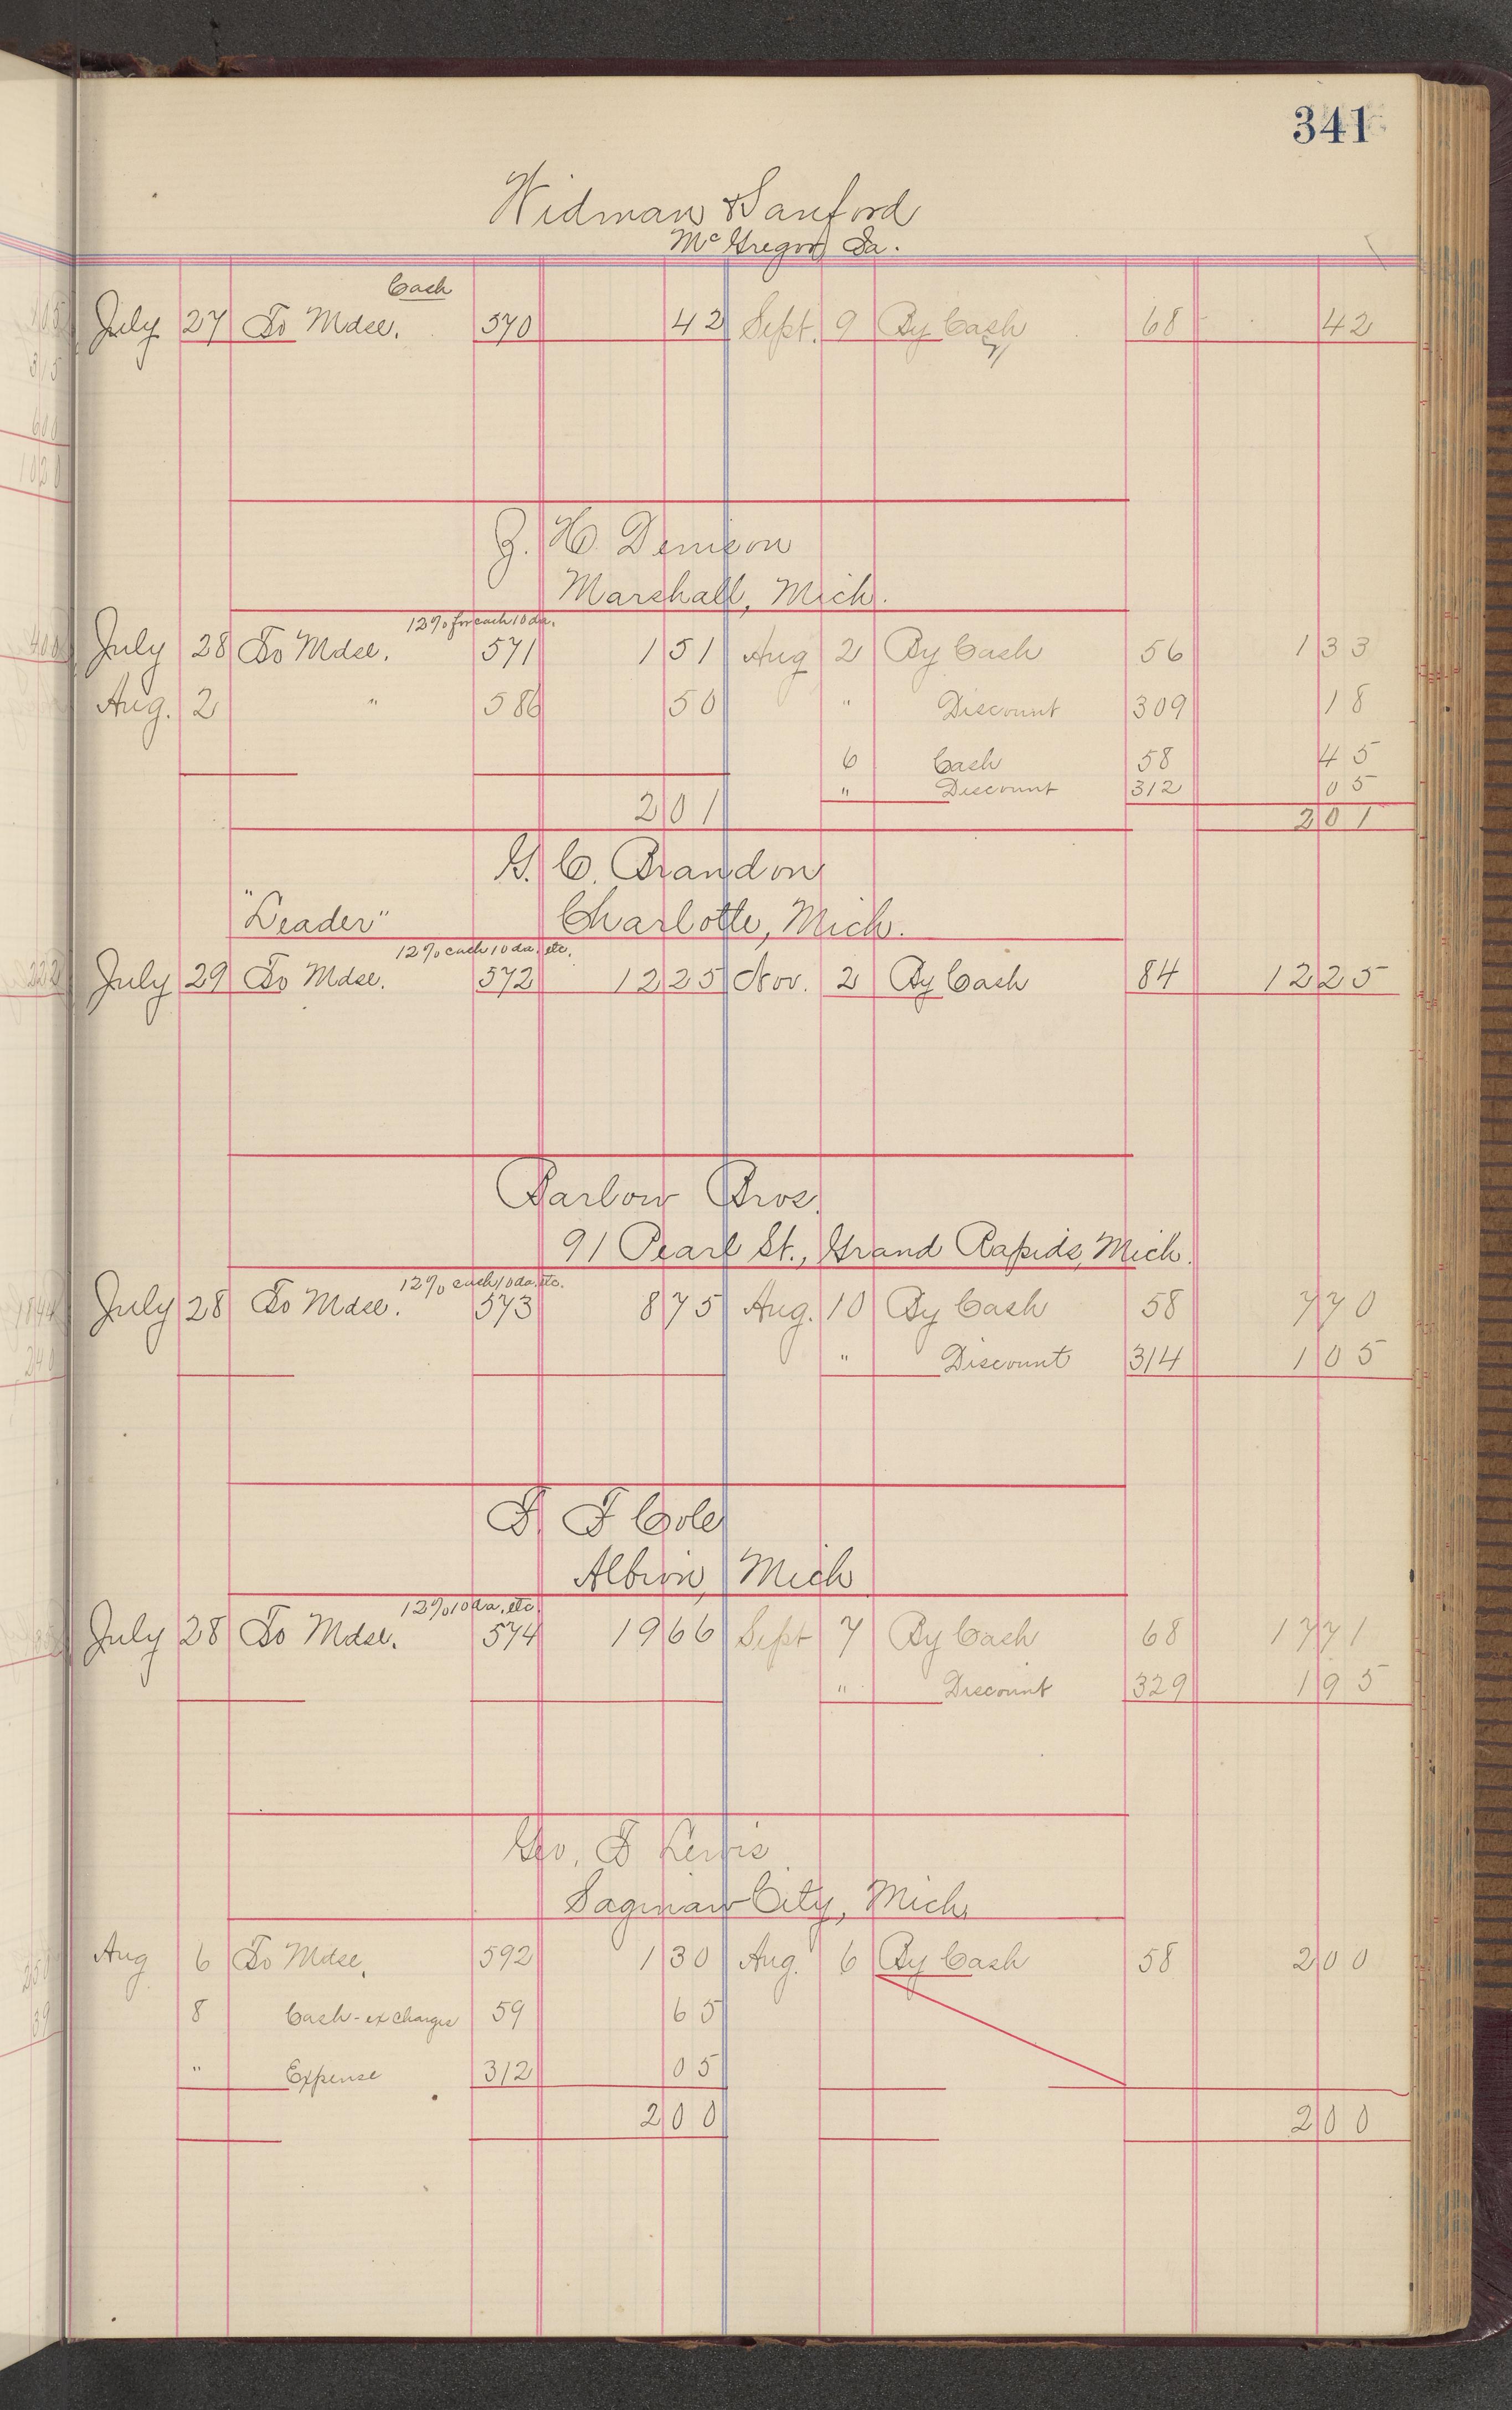 341
Widman & Sanford
McGregor, Ia.
Cash
July 27 To Mdse. 570 42 Sept. 9 By Cash 68 42
J. H. Denison
Marshall, Mich.
12% for each 10 da.
July 28 To Mdse. 571 1 51 Aug 2 By Cash 56 1 33
Aug. 2 " 586 50 " Discount 309 18
6 Cash 58 45
" Discount 312 05
2 01 2 01
G. C. Brandon
"Leader" Charlotte, Mich.
12% each 10 da. etc.
July 29 To Mdse. 572 12 25 Nov. 2 By Cash 84 12 25
Barlow Bros.
91 Pearl St., Grand Rapids, Mich.
12% each 10 da. etc.
July 28 To Mdse. 573 8 75 Aug. 10 By Cash 58 7 70
" Discount 314 1 05
F. F Cole
Albion, Mich
12% 10 da. etc.
July 28 To Mdse. 574 19 66 Sept 7 By Cash 68 17 71
" Discount 329 1 95
Geo. F Lewis
Saginaw City, Mich.
Aug 6 To Mdse. 592 1 30 Aug. 6 By Cash 58 2 00
8 Cash-ex charges 59 65
" Expense 312 05
2 00 2 00